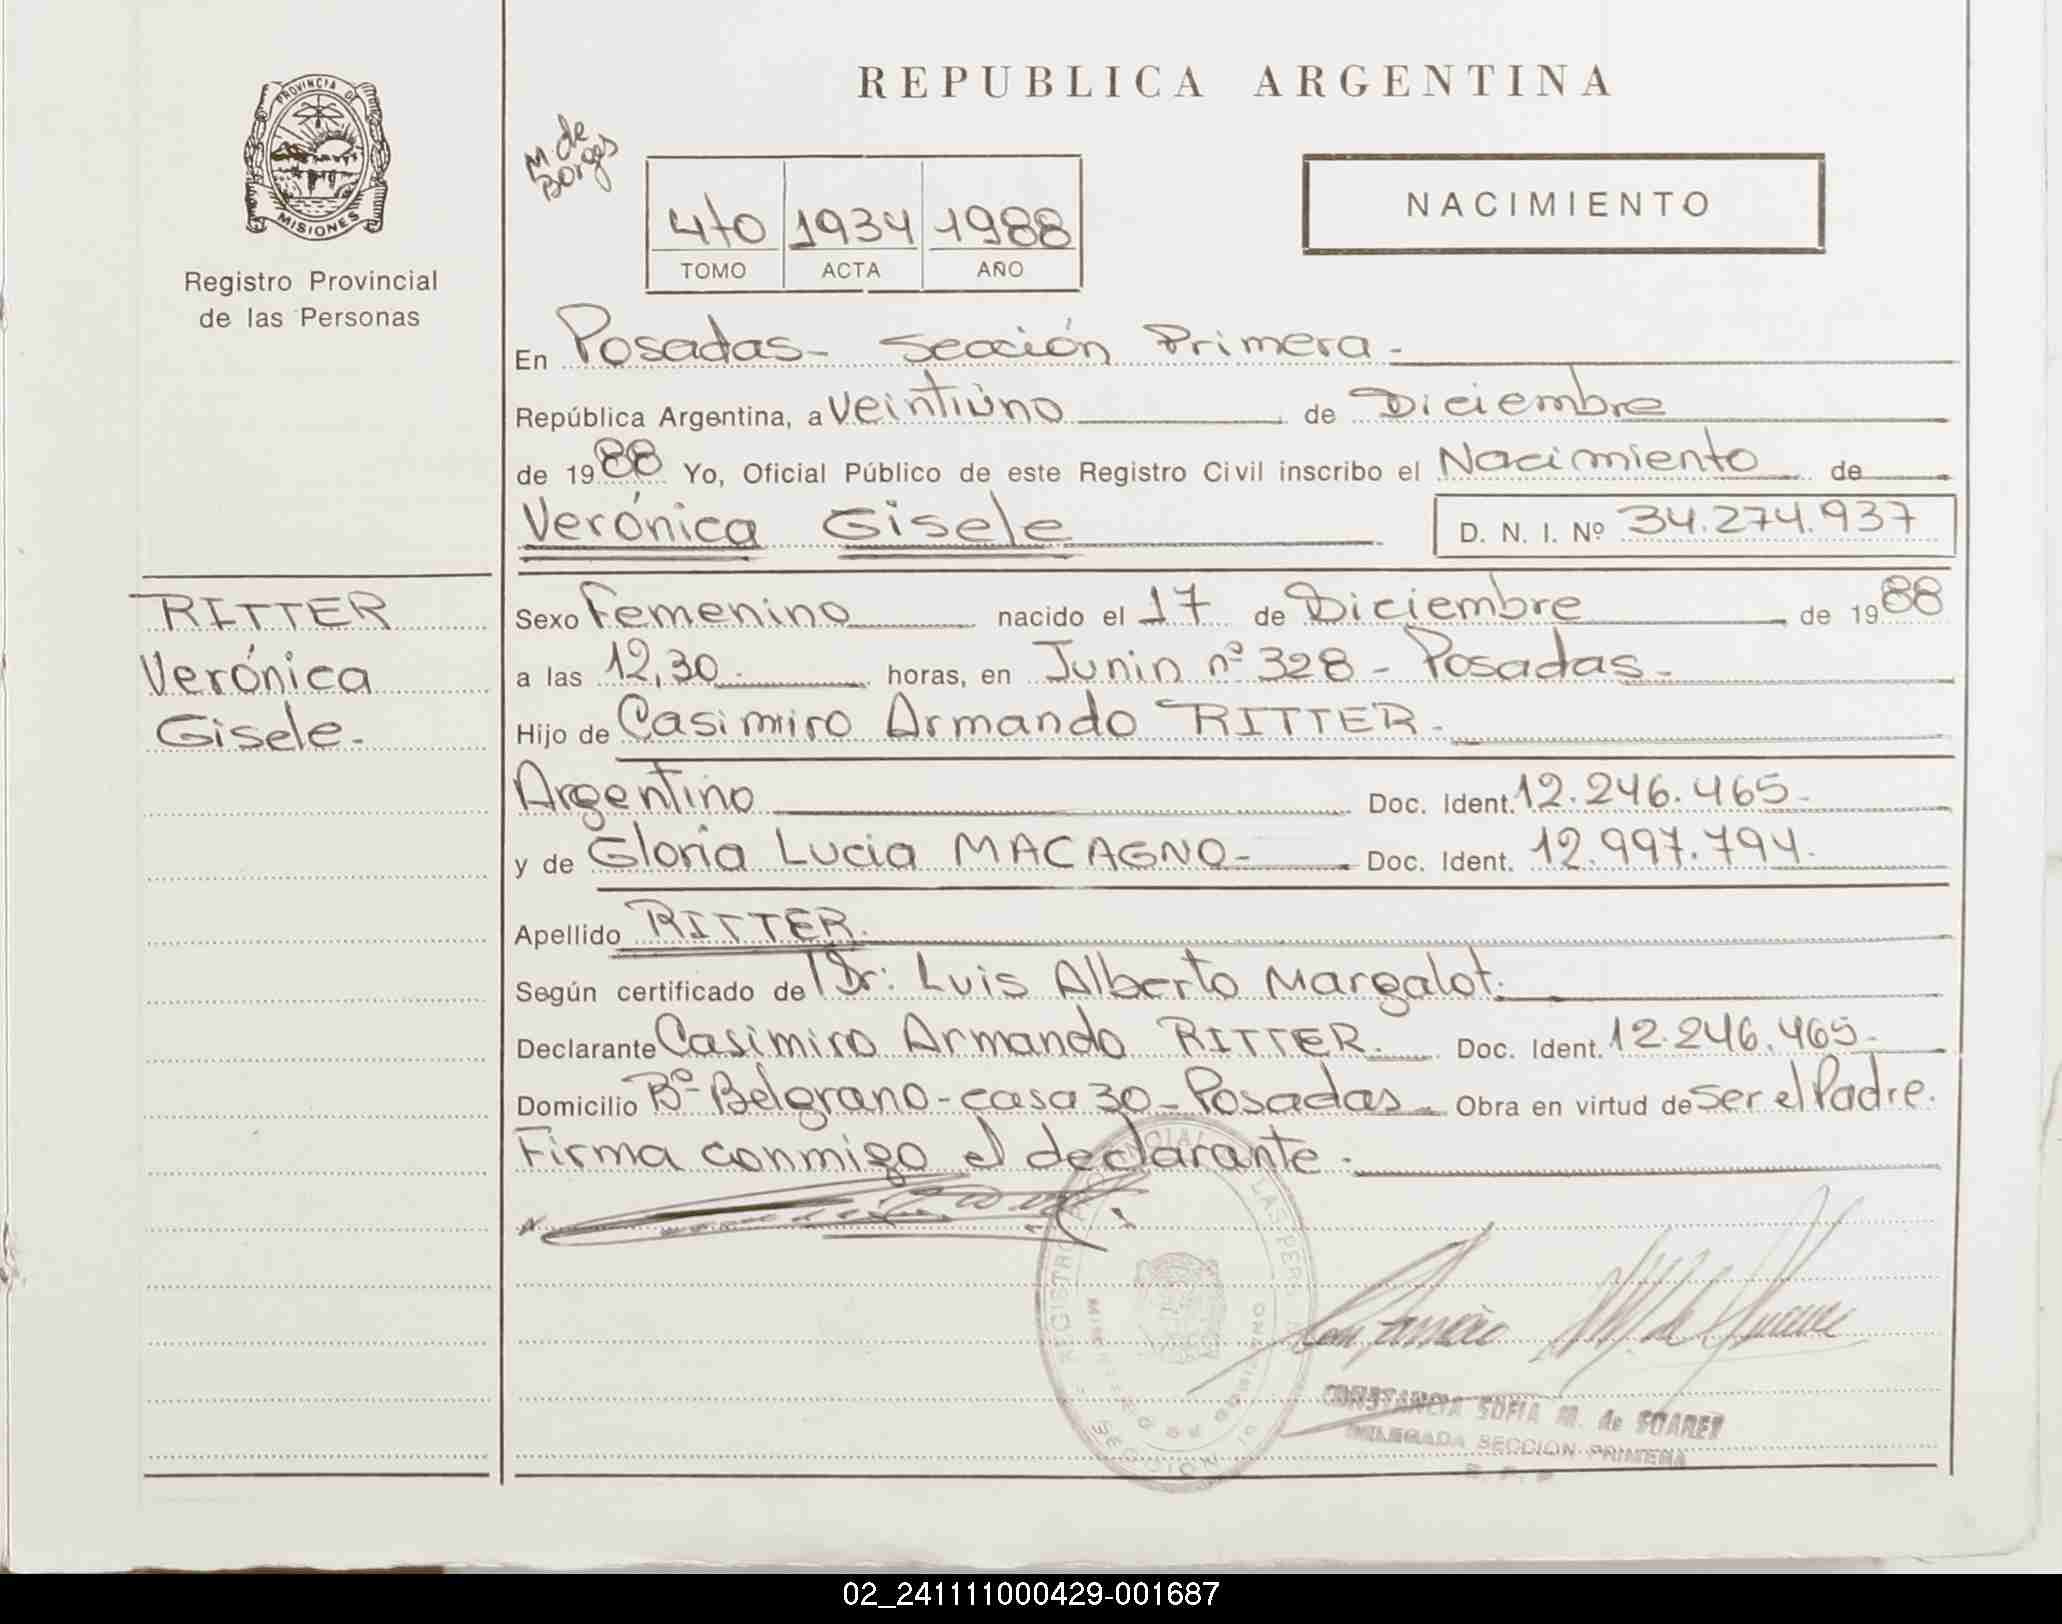 REPUBLICA ARGENTINA
PROVINCIA DE
MISIONES
Registro Provincial
de las Personas
M. de
Borges
4to 1934 1988
TOMO ACTA AÑO
NACIMIENTO
En Posadas - Sección Primera -
República Argentina, a Veintiuno de Diciembre
de 1988 Yo, Oficial Público de este Registro Civil inscribo el Nacimiento de
Verónica Gisele D. N. I. Nº 34.274.937
RITTER
Verónica
Gisele.-
Sexo Femenino nacido el 17 de Diciembre de 1988
a las 12,30.- horas, en Junin nº 328 - Posadas -
Hijo de Casimiro Armando RITTER.-
Argentino Doc. Ident. 12.246.465-
y de Gloria Lucia MACAGNO- Doc. Ident. 12.997.794.
Apellido RITTER.
Según certificado de Dr: Luis Alberto Margalot.
Declarante Casimiro Armando RITTER. Doc. Ident. 12.246.465-
Domicilio Bº Belgrano - casa 30 - Posadas - Obra en virtud de ser el Padre.
Firma conmigo el declarante.
CONSTANCIA SOFIA M. de SOAREZ
DELEGADA SECCION PRIMERA
02_241111000429-001687